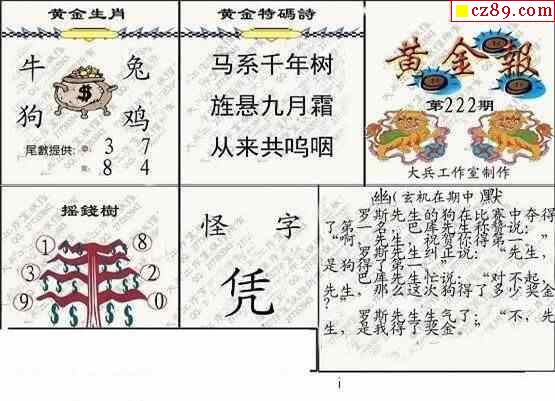 cz89.com
黄金生肖
牛 兔
狗 鸡
尾數提供: 3 7
8 4
黄金特碼詩
马系千年树
旌悬九月霜
从来共呜咽
黄金報
第222期
大兵工作室制作
摇錢樹
1 8
3 2
9 0
怪 字
凭
幽(玄机在期中)默
罗斯先生的狗在比赛中夺得
了第一名,巴库先生称赞说:
“啊,先生,祝贺你得第一,”
罗斯先生纠正说:“先生,
是狗得了第一。”
巴库先生忙说:“对不起,
先生,那么这次狗得了多少奖金
?”
罗斯先生生气了:“不,先
生,是我得了奖金。”
i